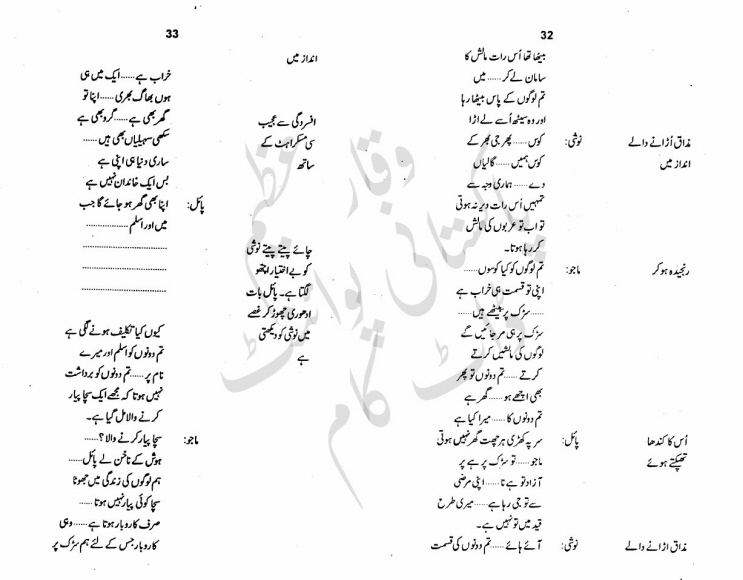 32
بیٹھا تھا اُس رات مالش کا
سامان لے کر...... میں
تم لوگوں کے پاس بیٹھا رہا
اور وہ سیٹھ اُسے لے اڑا
مذاق اُڑانے والے نوشی: کوس...... پھر جی بھر کے
انداز میں کوس ہمیں...... گالیاں
دے...... ہماری وجہ سے
تمہیں اُس رات دیر نہ ہوتی
تو اب تو عربوں کی مالش
کر رہا ہوتا۔
رنجیدہ ہو کر ماجو: تم لوگوں کو کیا کوسوں......
اپنی تو قسمت ہی خراب ہے
...... سڑک پر بیٹھے ہیں......
سڑک پر ہی مر جائیں گے
لوگوں کی مالشیں کرتے
کرتے...... تم دونوں تو پھر
بھی اچھے ہو...... گھر ہے
تم دونوں کا...... میرا کیا ہے
اُس کا کندھا پائل: سر پہ کھڑی ہر چھت گھر نہیں ہوتی
تھپکتے ہوئے ماجو...... تو سڑک پر ہے پر
آزاد تو ہے نا...... اپنی مرضی
سے تو جی رہا ہے...... میری طرح
قید میں تو نہیں ہے۔
مذاق اڑانے والے نوشی: آئے ہائے...... تم دونوں کی قسمت
33
انداز میں خراب ہے...... ایک میں ہی
ہوں بھاگ بھری...... اپنا تو
افسردگی سے عجیب گھر بھی ہے...... گرو بھی ہے
سی مسکراہٹ کے سکھی سہیلیاں بھی ہیں......
ساتھ ساری دنیا ہی اپنی ہے
بس ایک خاندان نہیں ہے
پائل: اپنا بھی گھر ہو جائے گا جب
میں اور اسلم..................
چائے پیتے پیتے نوشی ..............................
کو بے اختیار اچھو ..............................
لگتا ہے۔ پائل بات ..............................
ادھوری چھوڑ کر غصے
میں نوشی کو دیکھتی کیوں کیا تکلیف ہونے لگی ہے
ہے تم دونوں کو اسلم اور میرے
نام پر...... تم دونوں کو برداشت
نہیں ہوتا کہ مجھے ایک سچا پیار
کرنے والا مل گیا ہے۔
ماجو: سچا پیار کرنے والا؟......
ہوش کے ناخن لے پائل......
ہم لوگوں کی زندگی میں جھوٹا
سچا کوئی پیار نہیں ہوتا......
صرف کاروبار ہوتا ہے...... وہی
کاروبار جس کے لئے ہم سڑک پر
وقار عظیم
پاکستانی پوائنٹ
ڈاٹ کام